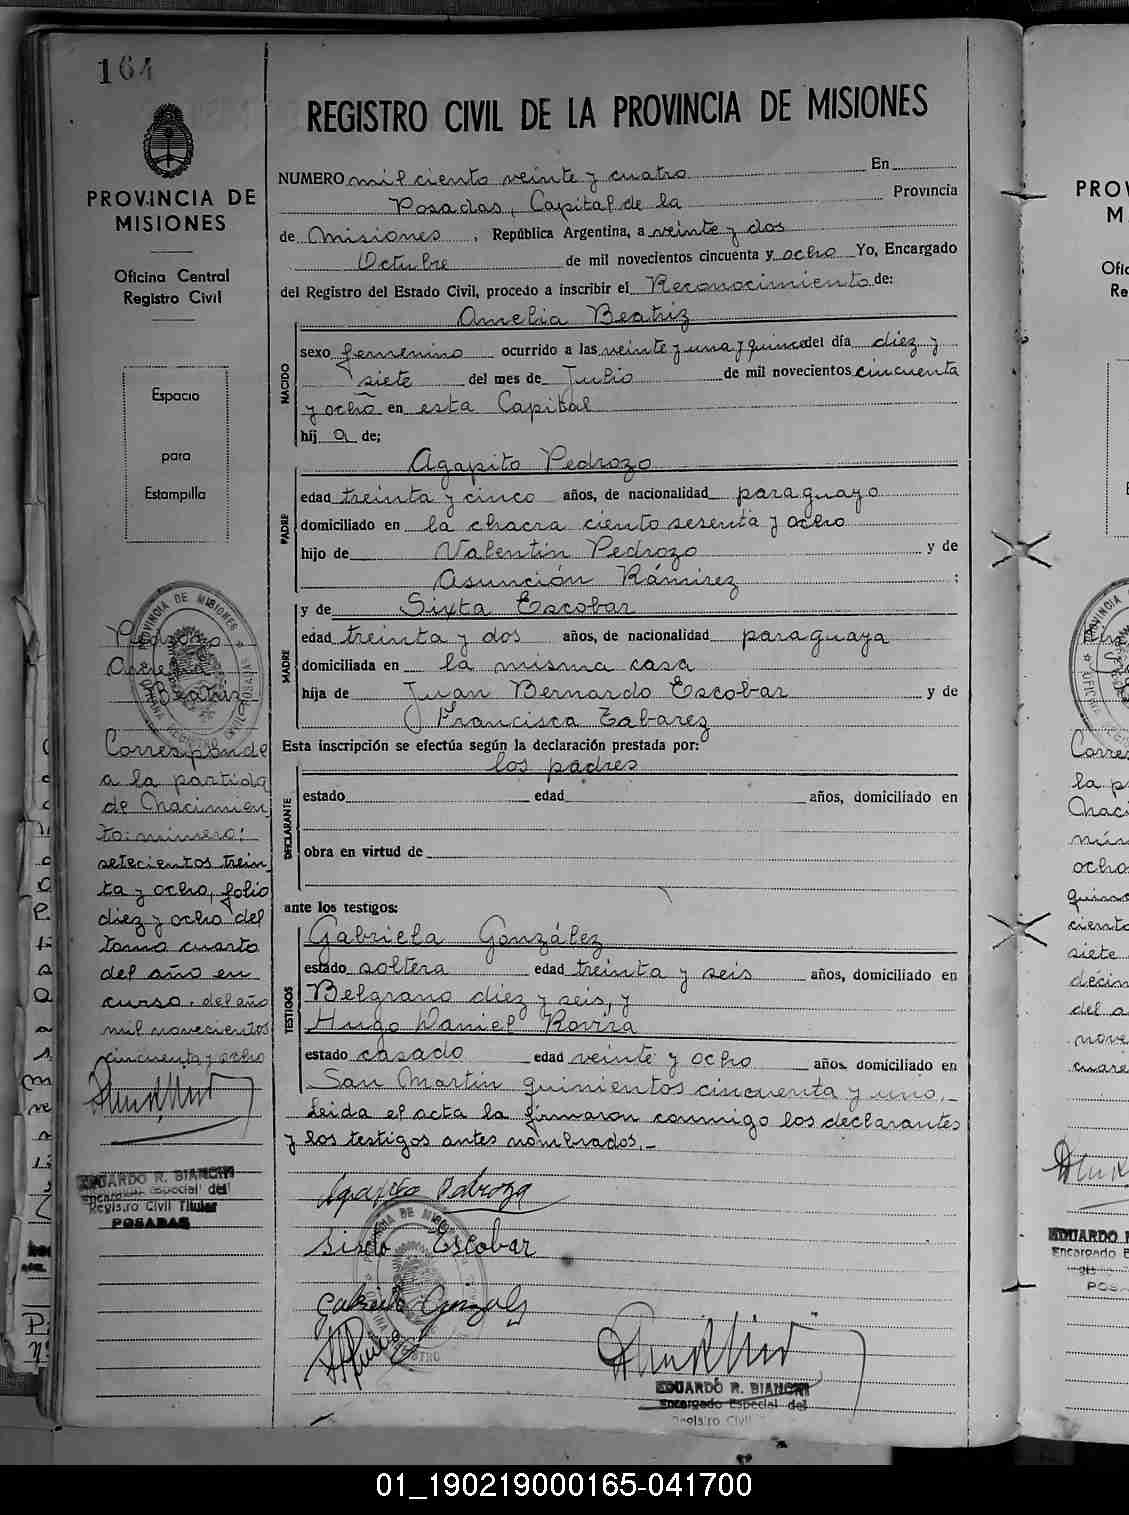 164
PROVINCIA DE
MISIONES
Oficina Central
Registro Civil
Espacio
para
Estampilla
PROVINCIA DE MISIONES
Pedrozo
Amelia
Beatriz
Corresponde
a la partida
de Nacimien
to: número:
setecientos trein
ta y ocho, folio
diez y ocho del
tomo cuarto
del año en
curso. del año
mil novecientos
cincuenta y ocho
EDUARDO R. BIANCHI
Encargado Especial del
Registro Civil Titular
POSADAS
REGISTRO CIVIL DE LA PROVINCIA DE MISIONES
NUMERO mil ciento veinte y cuatro En
Posadas, Capital de la Provincia
de Misiones, República Argentina, a veinte y dos
Octubre de mil novecientos cincuenta y ocho Yo, Encargado
del Registro del Estado Civil, procedo a inscribir el Reconocimiento de:
Amelia Beatriz
NACIDO
sexo femenino ocurrido a las veinte y una y quince del día diez y
siete del mes de Julio de mil novecientos cincuenta
y ocho en esta Capital
hij a de;
Agapito Pedrozo
PADRE
edad treinta y cinco años, de nacionalidad paraguayo
domiciliado en la chacra ciento sesenta y ocho
hijo de Valentín Pedrozo y de
Asunción Rámirez ;
y de Sixta Escobar
MADRE
edad treinta y dos años, de nacionalidad paraguaya
domiciliada en la misma casa
hija de Juan Bernardo Escobar y de
Francisca Tabarez
Esta inscripción se efectúa según la declaración prestada por:
los padres
DECLARANTE
estado edad años, domiciliado en
obra en virtud de
ante los testigos:
Gabriela González
TESTIGOS
estado soltera edad treinta y seis años, domiciliado en
Belgrano diez y seis, y
Hugo Daniel Rovira
estado casado edad veinte y ocho años, domiciliado en
San Martín quinientos cincuenta y uno.-
Leida el acta la firmaron conmigo los declarantes
y los testigos antes nombrados.-
Agapito Pedroza
Sixta Escobar
EDUARDO R. BIANCHI
Encargado Especial del
Registro Civil
01_190219000165-041700